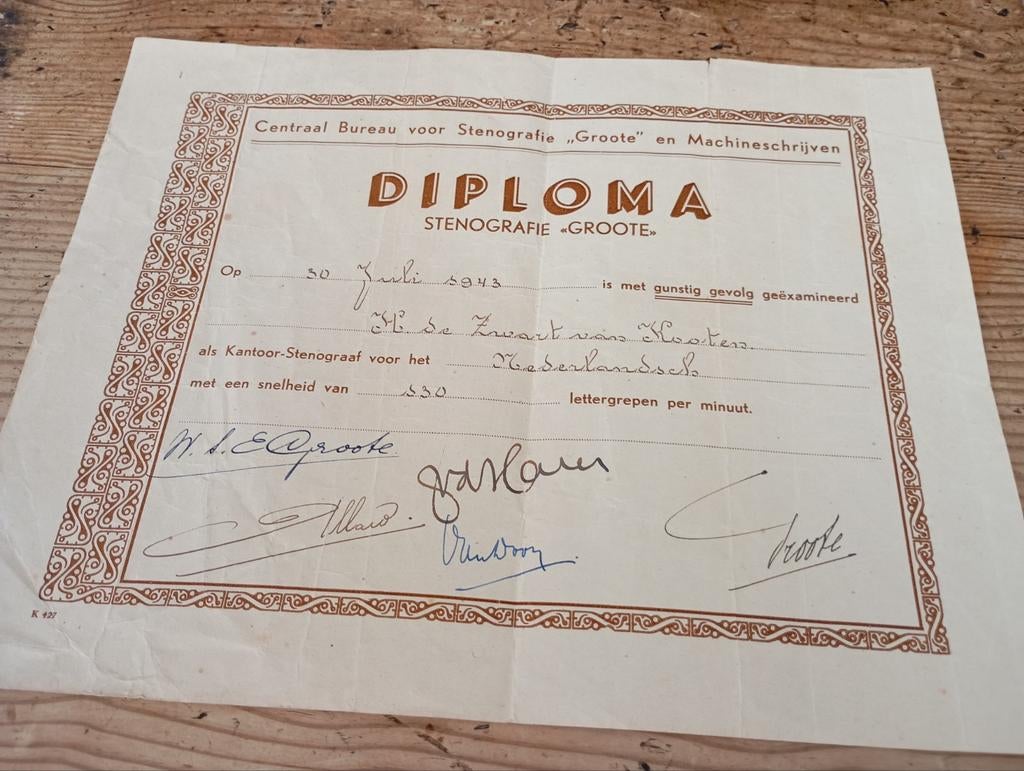 Centraal Bureau voor Stenografie „Groote” en Machineschrijven
DIPLOMA
STENOGRAFIE «GROOTE»
Op 30 Juli 1943 is met gunstig gevolg geëxamineerd
H. de Zwart van Kooten
als Kantoor-Stenograaf voor het Nederlandsch
met een snelheid van 130 lettergrepen per minuut.
Groote
Groote
K 427